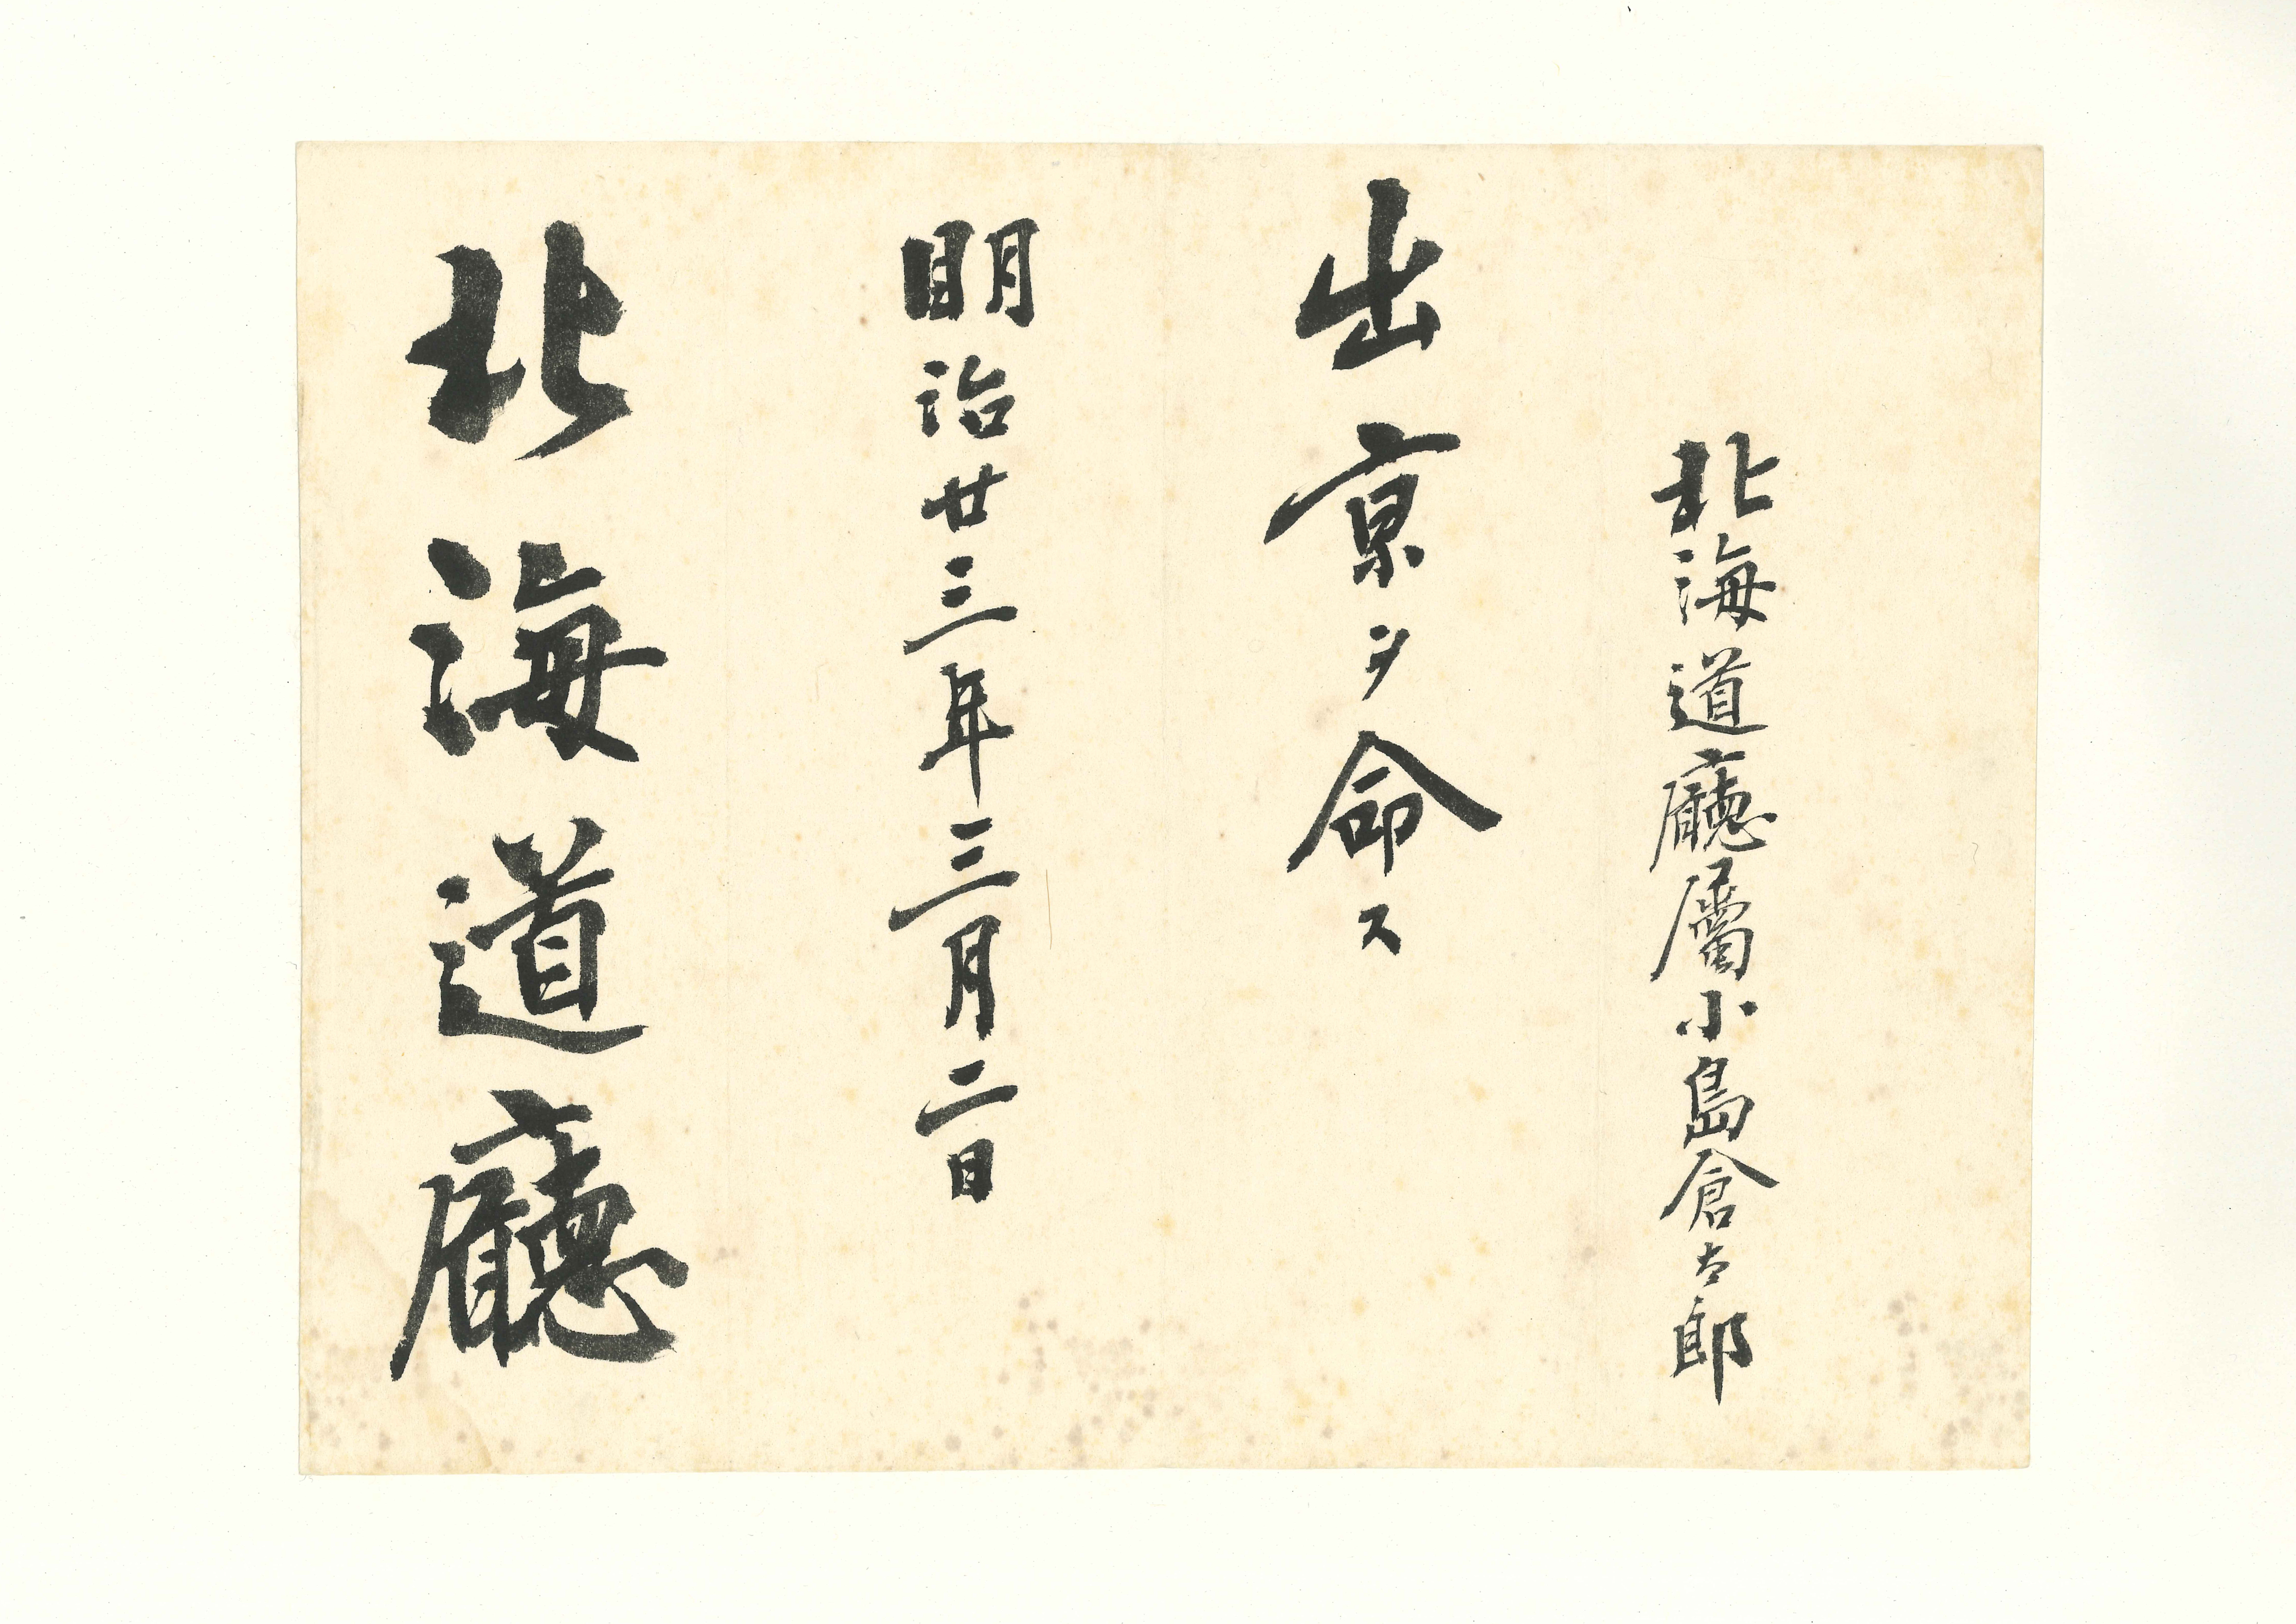 北海道廳屬小島倉太郎
出京ヲ命ス
明治廿三年三月二日
北海道廳